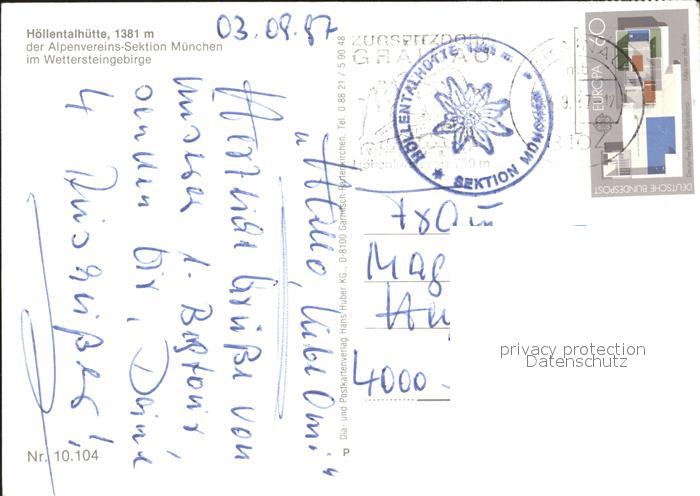 Höllentalhütte, 1381 m
der Alpenvereins-Sektion München
im Wettersteingebirge
03.09.87
"Hallo, liebe Omi"
Herzliche Grüße von
unserer 1. Bergtour,
senden Dir, Deine
4 Ausreißer!
Nr. 10.104
Dia- und Postkartenverlag Hans Huber KG., D-8100 Garmisch-Partenkirchen, Tel. 0 88 21 / 5 90 48
P
ZUGSPITZDORF
GRAINAU
HÖLLENTALHÜTTE 1381 m
SEKTION MÜNCHEN
60
EUROPA
DEUTSCHE BUNDESPOST
Mag
4000
privacy protection
Datenschutz